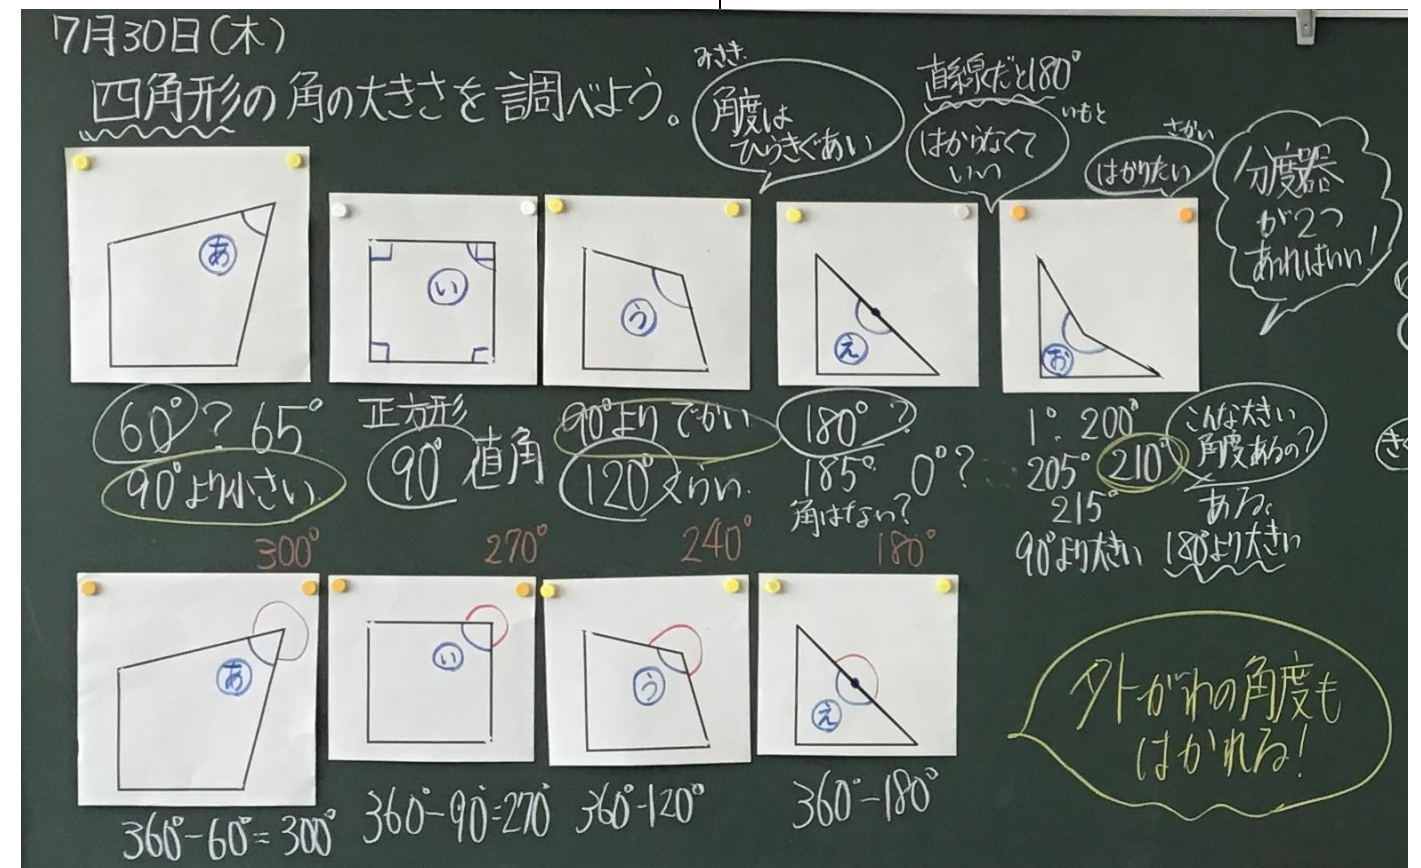 7月30日(木)
四角形の角の大きさを調べよう。
みさき
角度は
ひらきぐあい
直線だと180°
いもと
はからなくて
いい
さかい
はかりたい
分度器
が2つ
あればいい!
あ
い
う
え
お
60°? 65°
90°より小さい
正方形
90° 直角
90°よりでかい
120°くらい
180°?
185° 0°?
角はない?
1° 200°
205° 210°
215°
90°より大きい
こんな大きい
角度あるの?
ある。
180°より大きい
300°
270°
240°
180°
あ
い
う
え
360°-60°=300°
360°-90°=270°
360°-120°
360°-180°
外がわの角度も
はかれる!